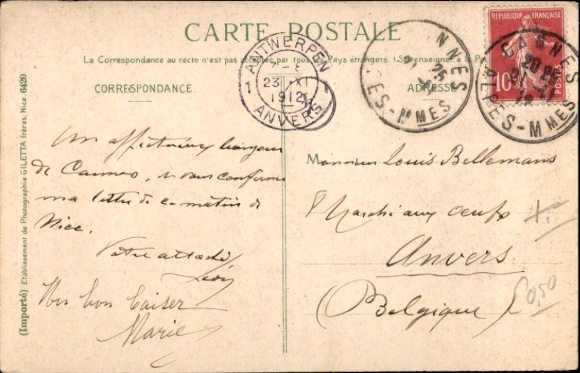 CARTE POSTALE
La Correspondance au recto n'est pas acceptée par tous les Pays étrangers. (Se renseigner à la P
CORRESPONDANCE
ADRESSE
ANTWERPEN
1
23 XI
1912
ANVERS
NNES
25
PES-MMES
RÉPUBLIQUE FRANÇAISE
10
POSTES
CANNES
20
ALPES-MMES
Un affectueux bonjour
de Cannes, vous confirme
ma lettre de ce matin de
Nice.
Votre attaché
Léon
Un bon baiser
Marie
Monsieur Louis Bellemans
Marché aux oeufs
Anvers
(Belgique)
0,50
(Importé) Etablissement de Photographie GILETTA frères, Nice 6420